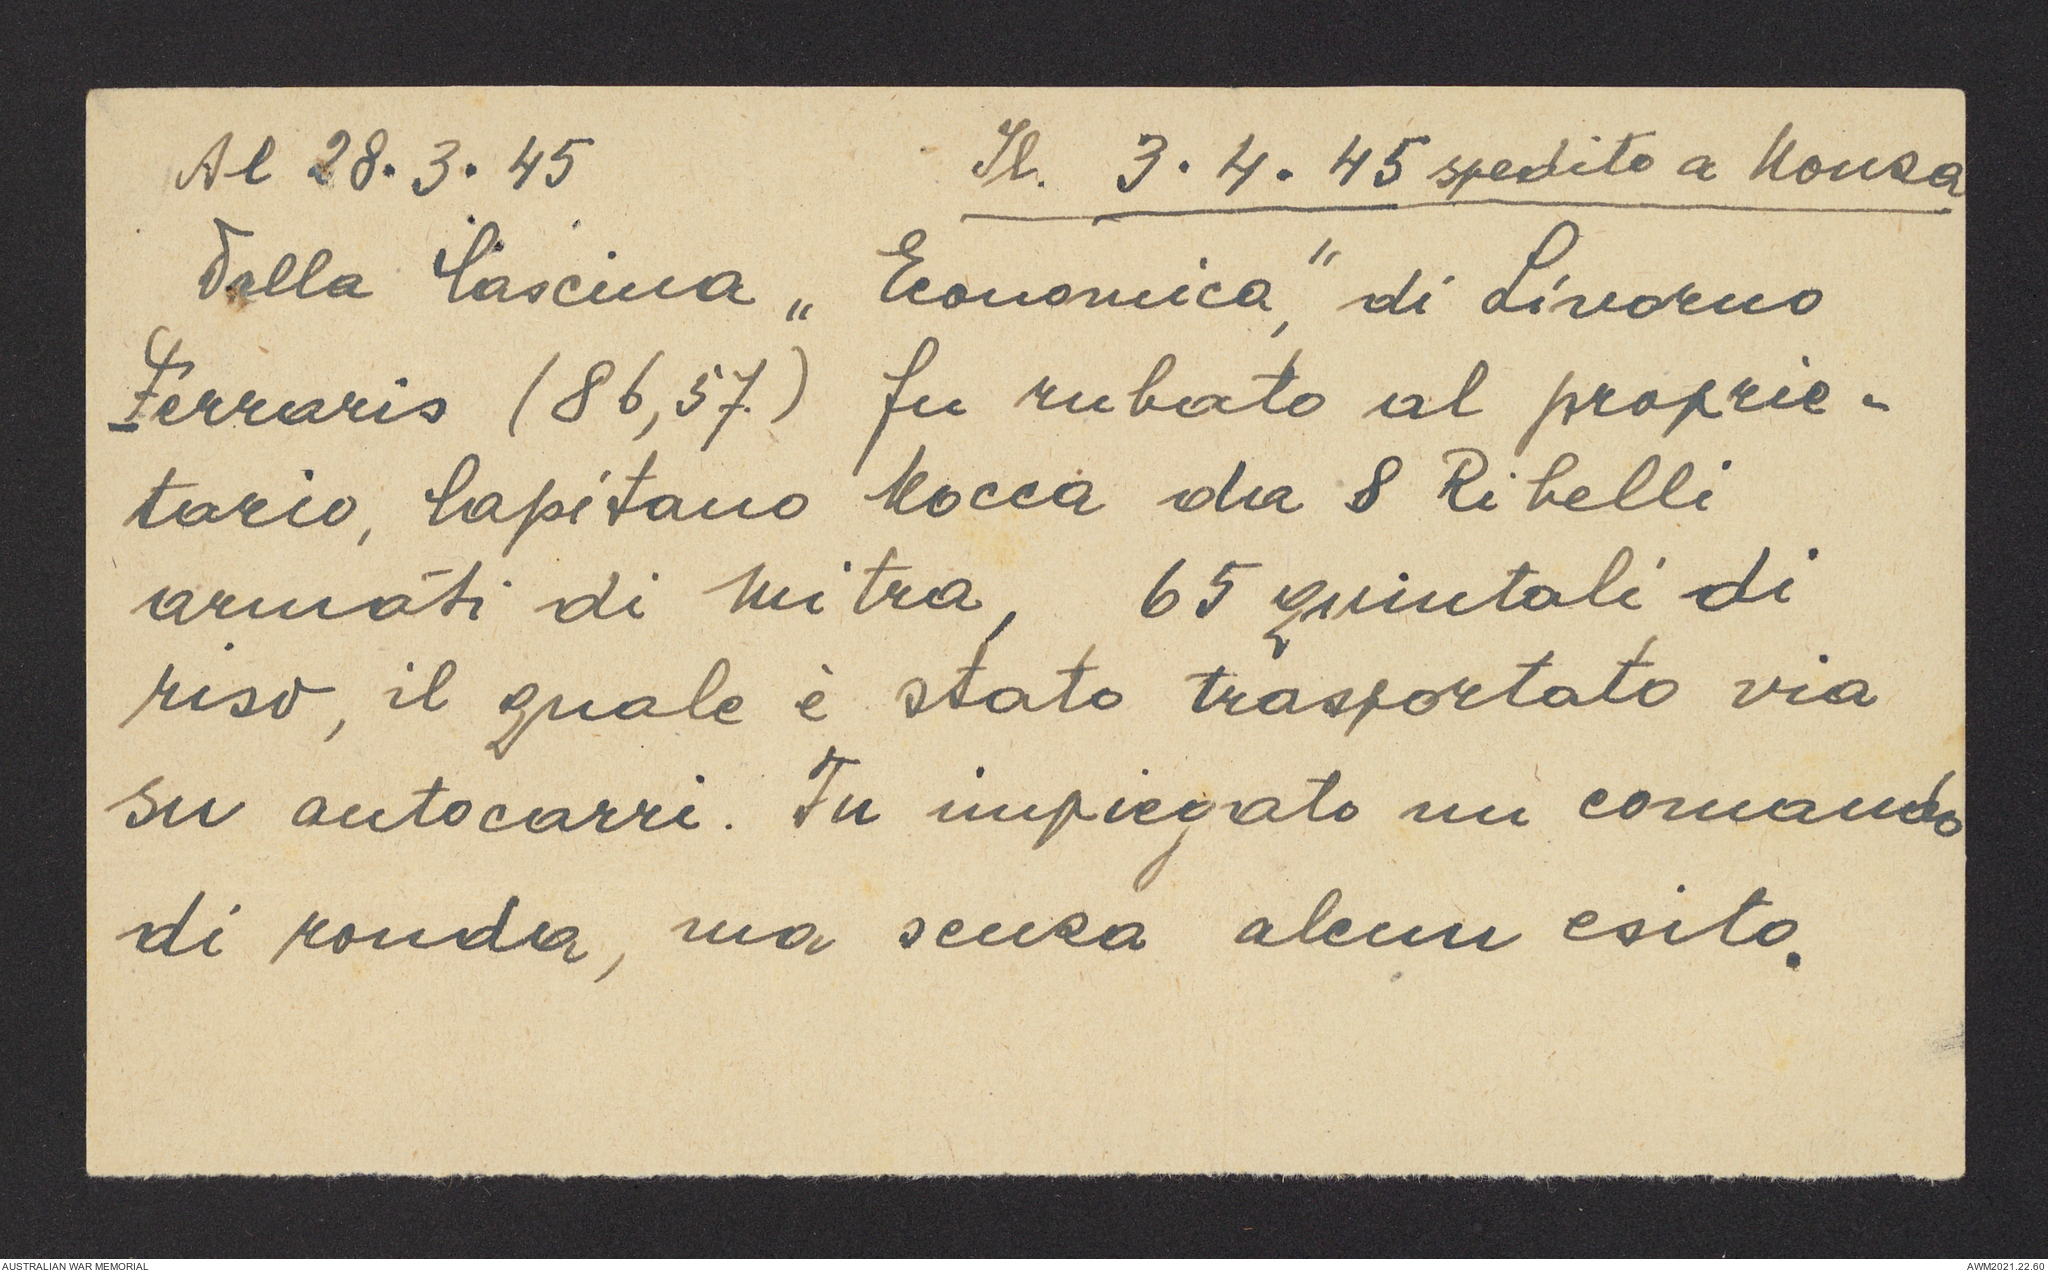 Al 28.3.45
Il. 3.4.45 spedito a Monza
Dalla Cascina „Economica," di Livorno
Ferraris (86,57) fu rubato al proprie-
tario, Capitano Mocca da 8 Ribelli
armati di Mitra, 65 quintali di
riso, il quale è stato trasportato via
su autocarri. Fu impiegato un comando
di ronda, ma senza alcun esito.
AUSTRALIAN WAR MEMORIAL
AWM2021.22.60